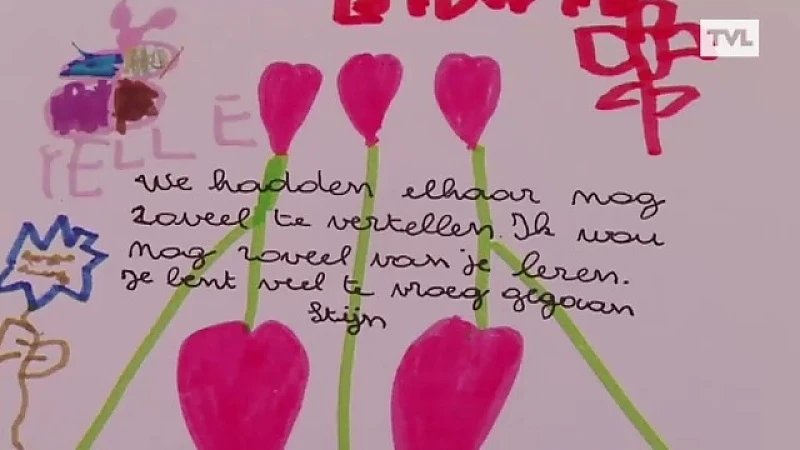 TVL
YELLE
we hadden elhaar nog
zoveel te vertellen. Ik wou
nog zoveel van je leren.
Je bent veel te vroeg gegaan
Stijn